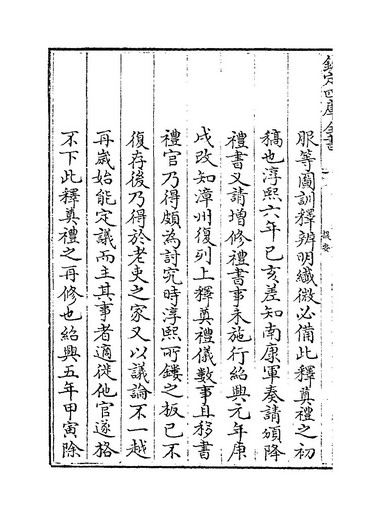 欽定四庫全書
提要
服等圖訓釋辨明纖微必備此釋奠禮之初
稿也淳熙六年己亥差知南康軍奏請頒降
禮書又請增修禮書事未施行紹興元年庚
戌改知漳州復列上釋奠禮儀數事且移書
禮官乃得頗為討究時淳熙所鏤之板已不
復存後乃得於老吏之家又以議論不一越
再歲始能定議而主其事者適徙他官遂格
不下此釋奠禮之再修也紹興五年甲寅除